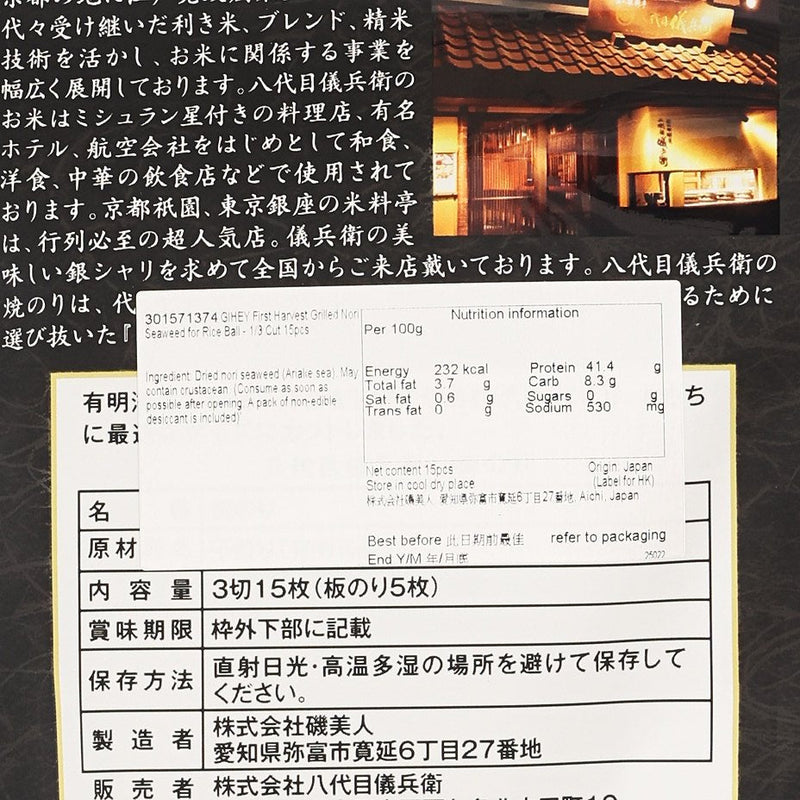 代々受け継いだ利き米、ブレンド、精米
技術を活かし、お米に関係する事業を
幅広く展開しております。八代目儀兵衛の
お米はミシュラン星付きの料理店、有名
ホテル、航空会社をはじめとして和食、
洋食、中華の飲食店などで使用されて
おります。京都祇園、東京銀座の米料亭
は、行列必至の超人気店。儀兵衛の美
味しい銀シャリを求めて全国からご来店戴いております。八代目儀兵衛の
焼のりは、代
るために
選び抜いた『
301571374 GIHEY First Harvest Grilled Nori
Seaweed for Rice Ball - 1/3 Cut 15pcs
Ingredient: Dried nori seaweed (Ariake sea). May
contain crustacean. (Consume as soon as
possible after opening. A pack of non-edible
desiccant is included)
Nutrition information
Per 100g
Energy 232 kcal Protein 41.4 g
Total fat 3.7 g Carb 8.3 g
Sat. fat 0.6 g Sugars 0 g
Trans fat 0 g Sodium 530 mg
Net content 15pcs Origin: Japan
Store in cool dry place (Label for HK)
株式会社磯美人 愛知県弥富市寛延6丁目27番地, Aichi, Japan
Best before 此日期前最佳 refer to packaging
End Y/M 年/月底 25022
有明
ち
に最
名
原材
内容量 3切15枚(板のり5枚)
賞味期限 枠外下部に記載
保存方法 直射日光・高温多湿の場所を避けて保存して
ください。
製造者 株式会社磯美人
愛知県弥富市寛延6丁目27番地
販売者 株式会社八代目儀兵衛